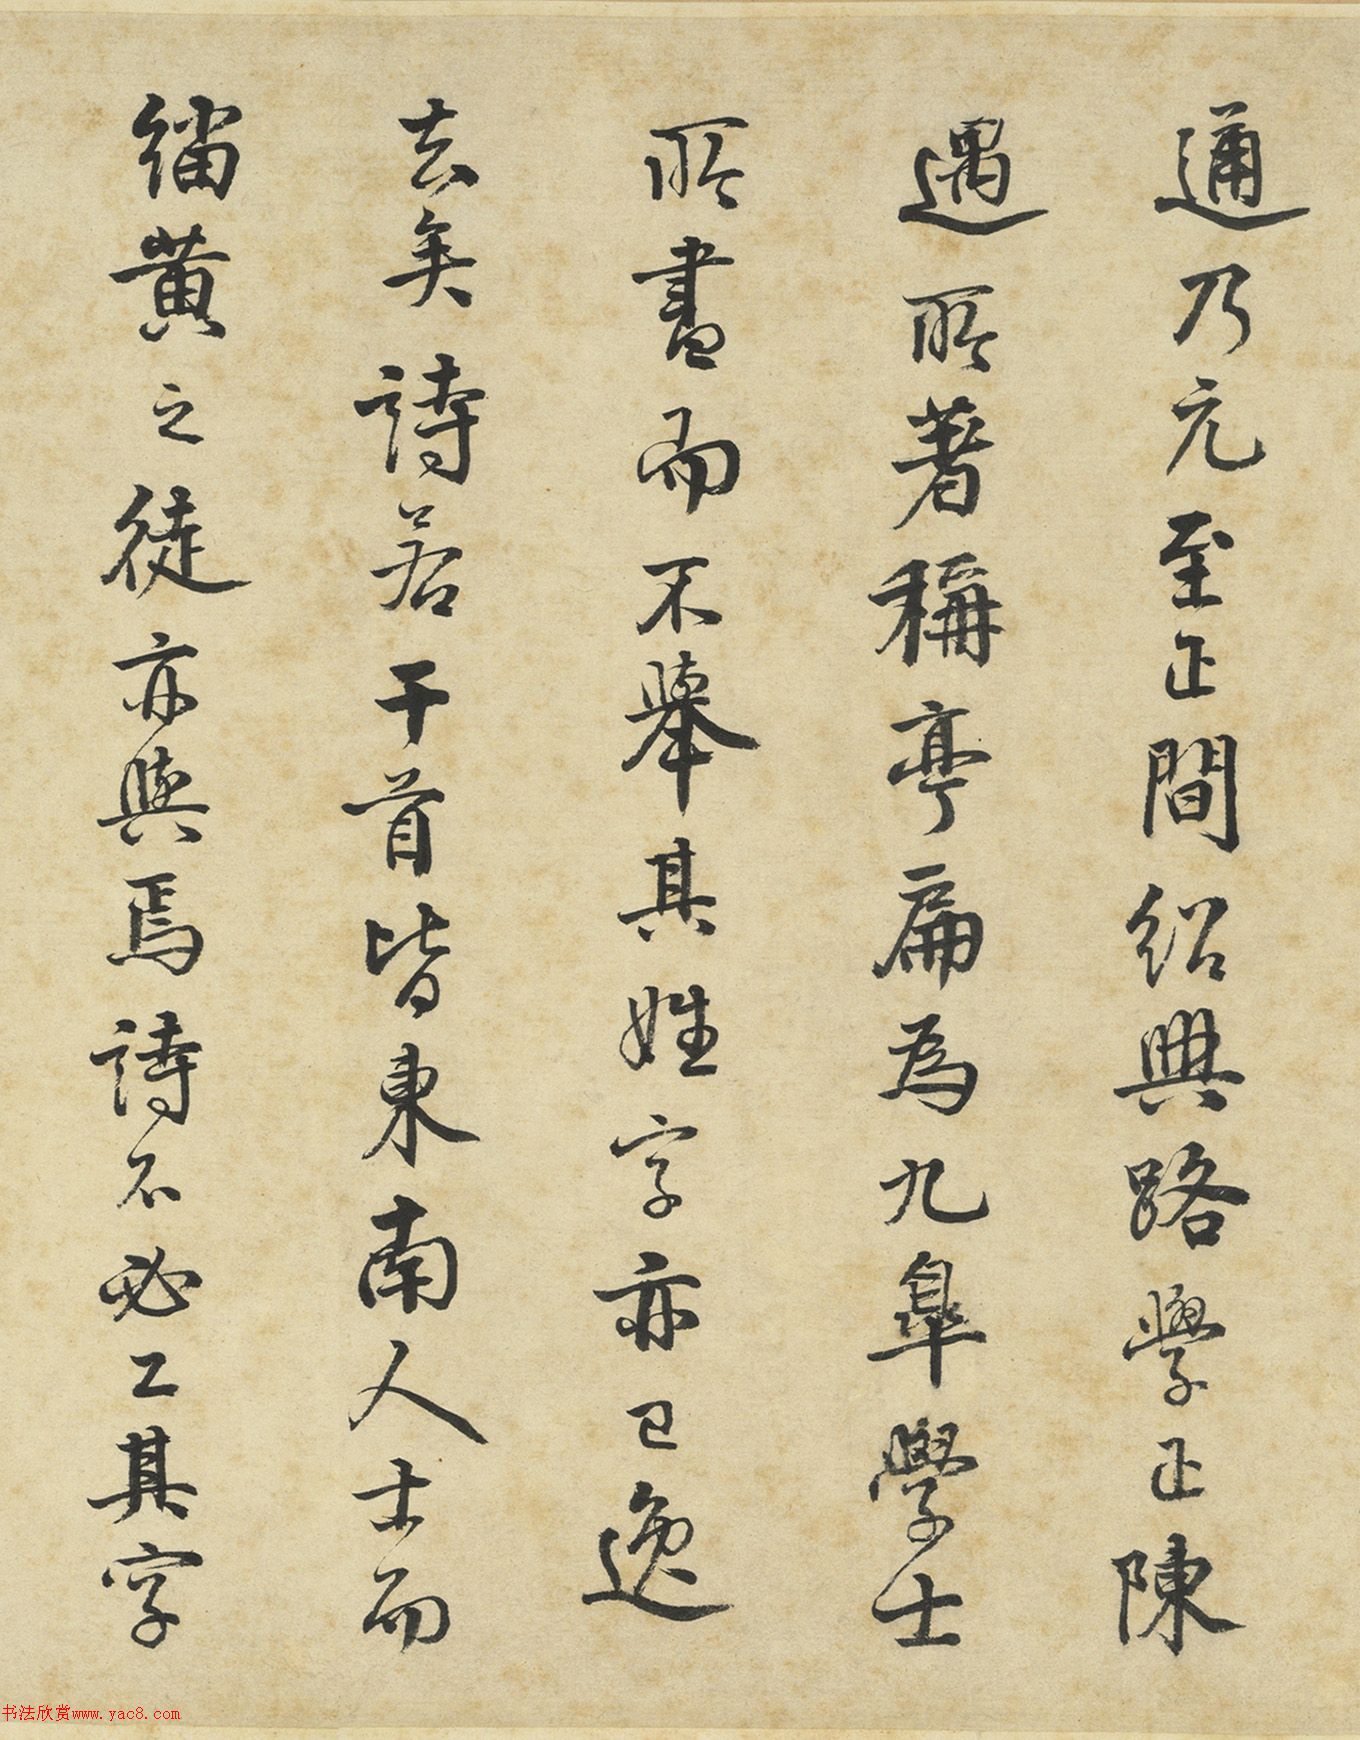 通乃元至正間紹興路學正陳
遇所著稱亭扁為九皐學士
所書而不舉其姓字亦已逸
去矣詩若干首皆東南人士而
緇黃之徒亦與焉詩不必工其字
书法欣赏www.yac8.com